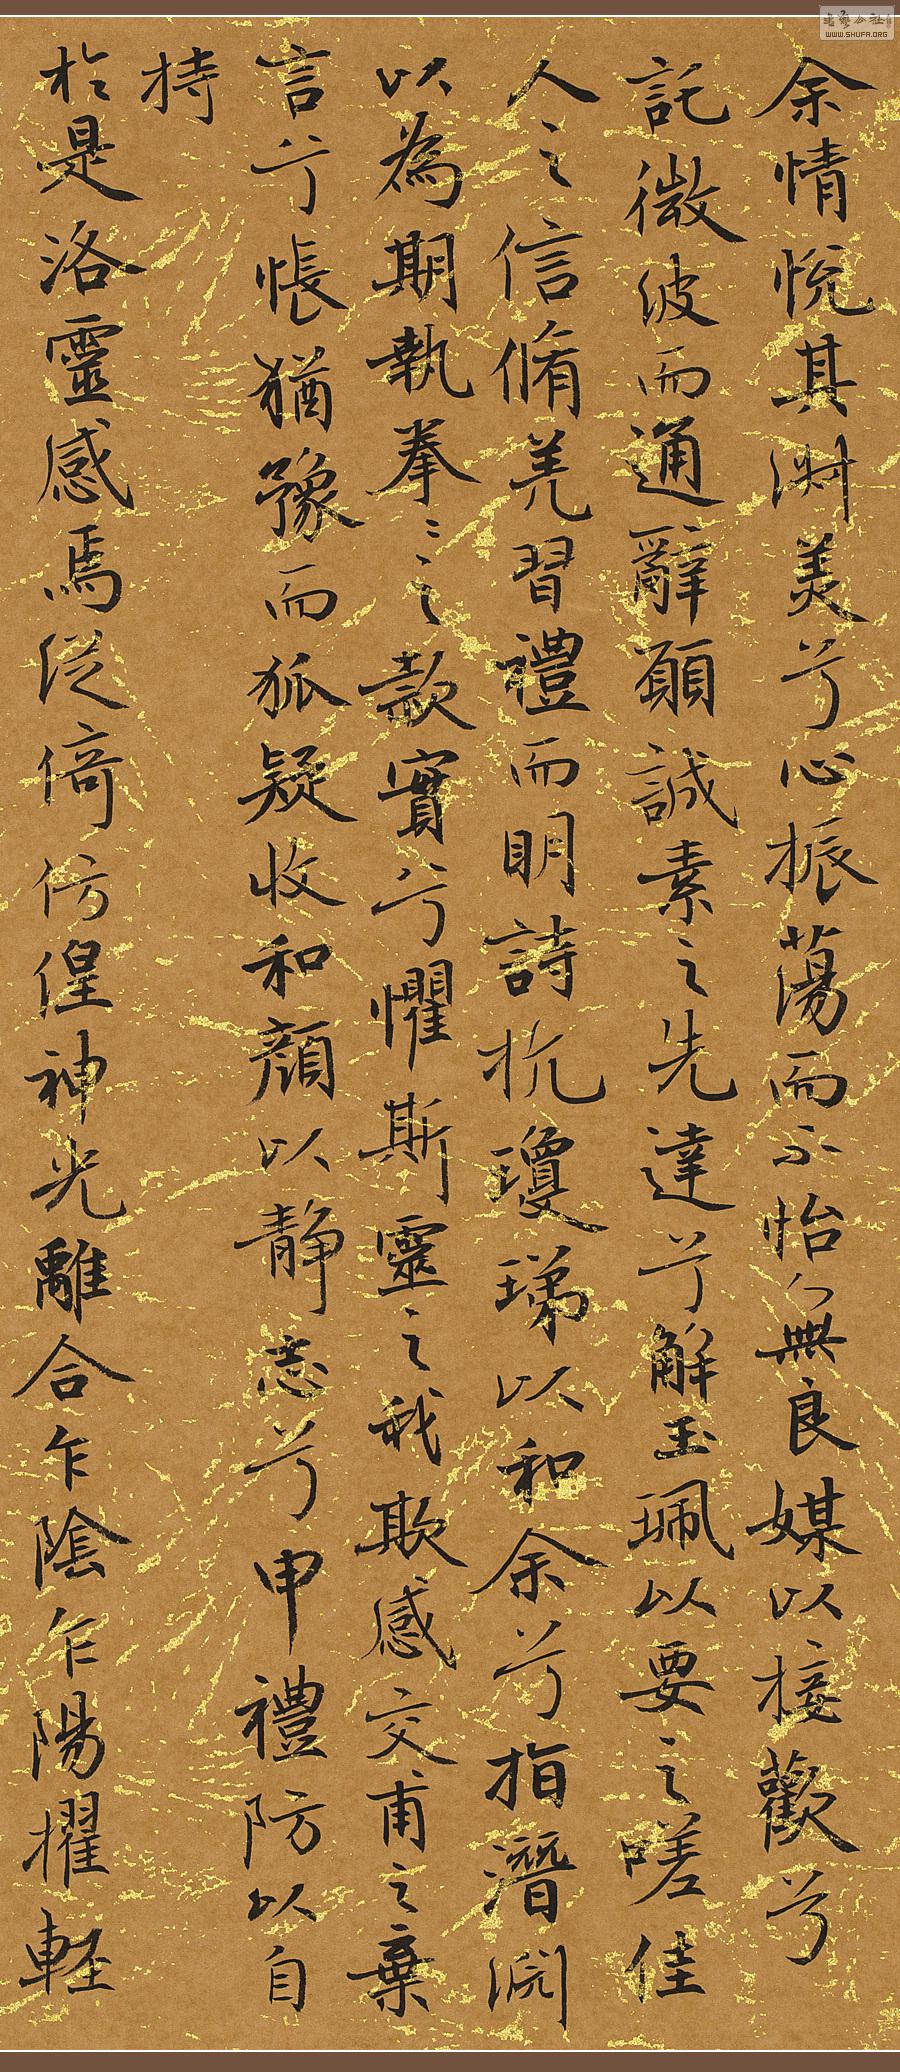 余情悅其淑美兮心振蕩而不怡無良媒以接歡兮
託微波而通辭願誠素之先達兮解玉珮以要之嗟佳
人之信脩羌習禮而明詩抗瓊珶以和余兮指潛淵
以為期執拳々之款實兮懼斯靈之我欺感交甫之棄
言兮悵猶豫而狐疑收和顔以靜志兮申禮防以自
持
於是洛靈感焉徙倚仿偟神光離合乍陰乍陽擢輕
WWW.SHUFA.ORG